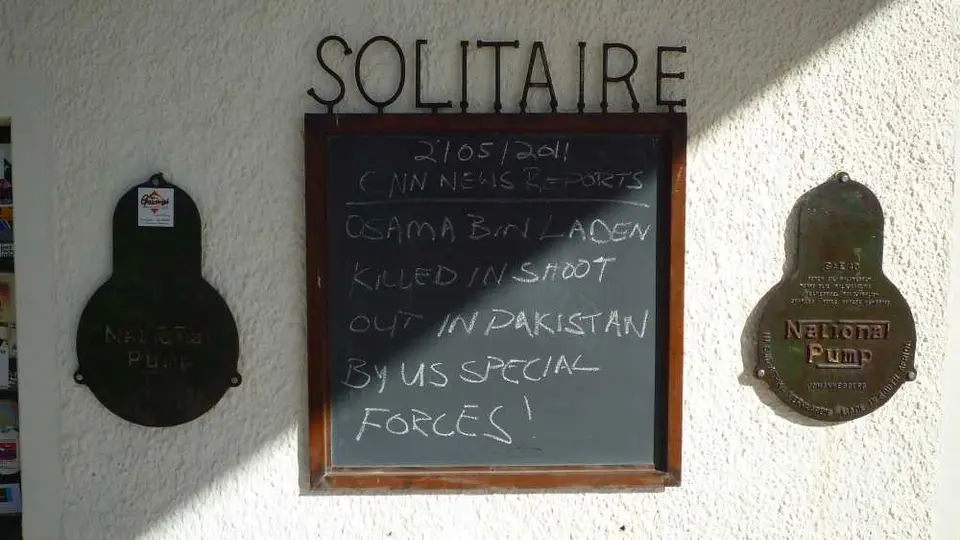 SOLITAIRE
2/05/2011
CNN NEWS REPORTS
OSAMA BIN LADEN
KILLED IN SHOOT
OUT IN PAKISTAN
BY US SPECIAL
FORCES!
National
Pump
National
Pump
JOHANNESBURG
MADE IN SOUTH AFRICA